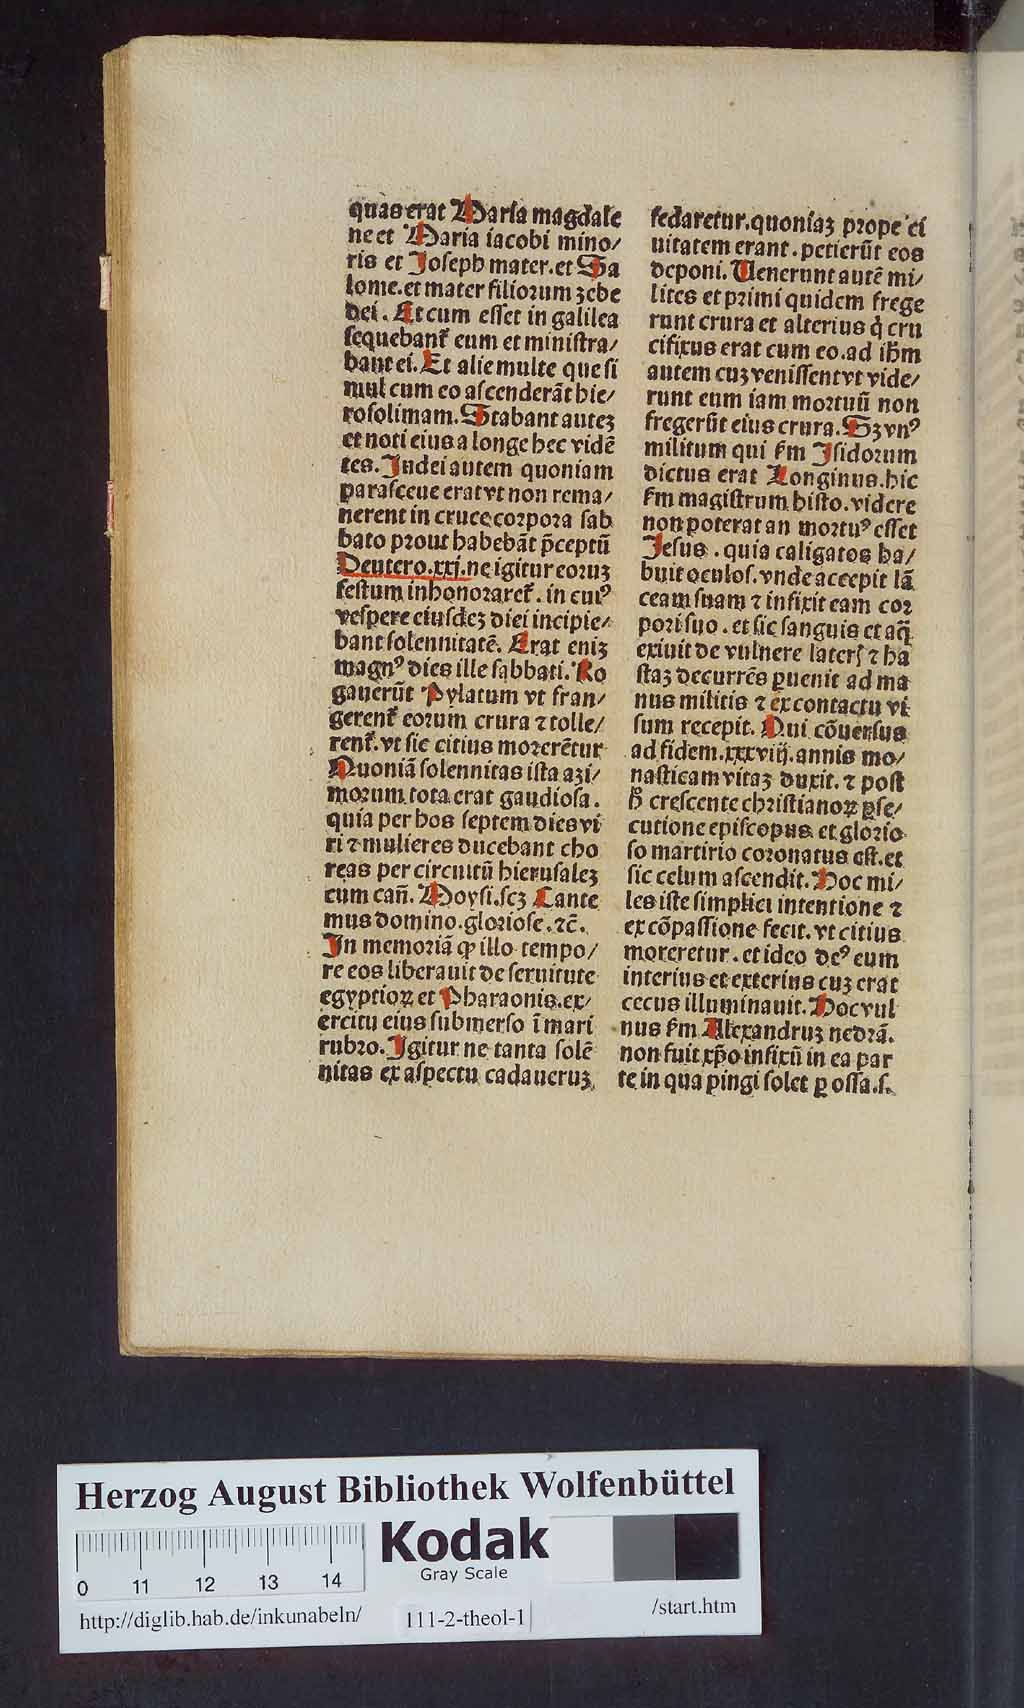 quas erat Maria magdale
ne et Maria iacobi mino/
ris et Joseph mater. et Sa
lome. et mater filiorum zebe
dei. Et cum esset in galilea
sequebant᷑ eum et ministra/
bant ei. Et alie multe que si
mul cum eo ascenderāt hie/
rosolimam. Stabant auteꝫ
et noti eius a longe hec vidē
tes. Judei autem quoniam
parasceue erat vt non rema/
nerent in cruce corpora sab
bato prout habebāt p̄ceptū
Deutero.xxj. ne igitur eoruꝫ
festum inhonoraret᷑. in cuiꝰ
vespere eiusdeꝫ diei incipie/
bant solennitatē. Erat eniꝫ
magnꝰ dies ille sabbati. Ro
gauerūt Pylatum vt fran/
gerent᷑ eorum crura ⁊ tolle/
rent᷑. vt sic citius morerētur
Quoniā solennitas ista azi/
morum tota erat gaudiosa.
quia per hos septem dies vi
ri ⁊ mulieres ducebant cho
reas per circuitū hierusaleꝫ
cum can̄. Moysi. scꝫ Cante
mus domino. gloriose. ⁊c̄.
In memoriā ꝙ illo tempo/
re eos liberauit de seruitute
egyptioꝝ et Pharaonis. ex/
ercitu eius submerso ī mari
rubro. Igitur ne tanta solē
nitas ex aspectu cadaueruꝫ
fedaretur. quoniaꝫ prope ci
uitatem erant. petierūt eos
deponi. Uenerunt autē mi/
lites et primi quidem frege
runt crura et alterius q̇ cru
cifixus erat cum eo. ad ihm̄
autem cuꝫ venissent vt vide/
runt eum iam mortuū non
fregerūt eius crura. Sꝫ vnꝰ
militum qui fm̄ Isidorum
dictus erat Longinus. hic
fm̄ magistrum histo. videre
non poterat an mortuꝰ esset
Jesus. quia caligatos ha/
buit oculos. vnde accepit lā
ceam suam ⁊ infixit eam cor
pori suo. et sic sanguis et aq̄
exiuit de vulnere laterꝭ ⁊ ha
staꝫ decurrēs ꝑuenit ad ma
nus militis ⁊ ex contactu vi
sum recepit. Qui cōuersus
ad fidem. xxxviij. annis mo/
nasticam vitaꝫ duxit. ⁊ post
h̄ crescente christianoꝝ ꝑse/
cutione episcopus et glorio
so martirio coronatus est. et
sic celum ascendit. Hoc mi/
les iste simplici intentione ⁊
ex cōpassione fecit. vt citius
moreretur. et ideo deꝰ eum
interius et exterius cuꝫ erat
cecus illuminauit. Hoc vul
nus fm̄ Alexandruꝫ nedrā.
non fuit xp̄o infixū in ea par
te in qua pingi solet ꝑ ossa. s.
Herzog August Bibliothek Wolfenbüttel
Kodak
Gray Scale
0 11 12 13 14
http://diglib.hab.de/inkunabeln/ 111-2-theol-1 /start.htm